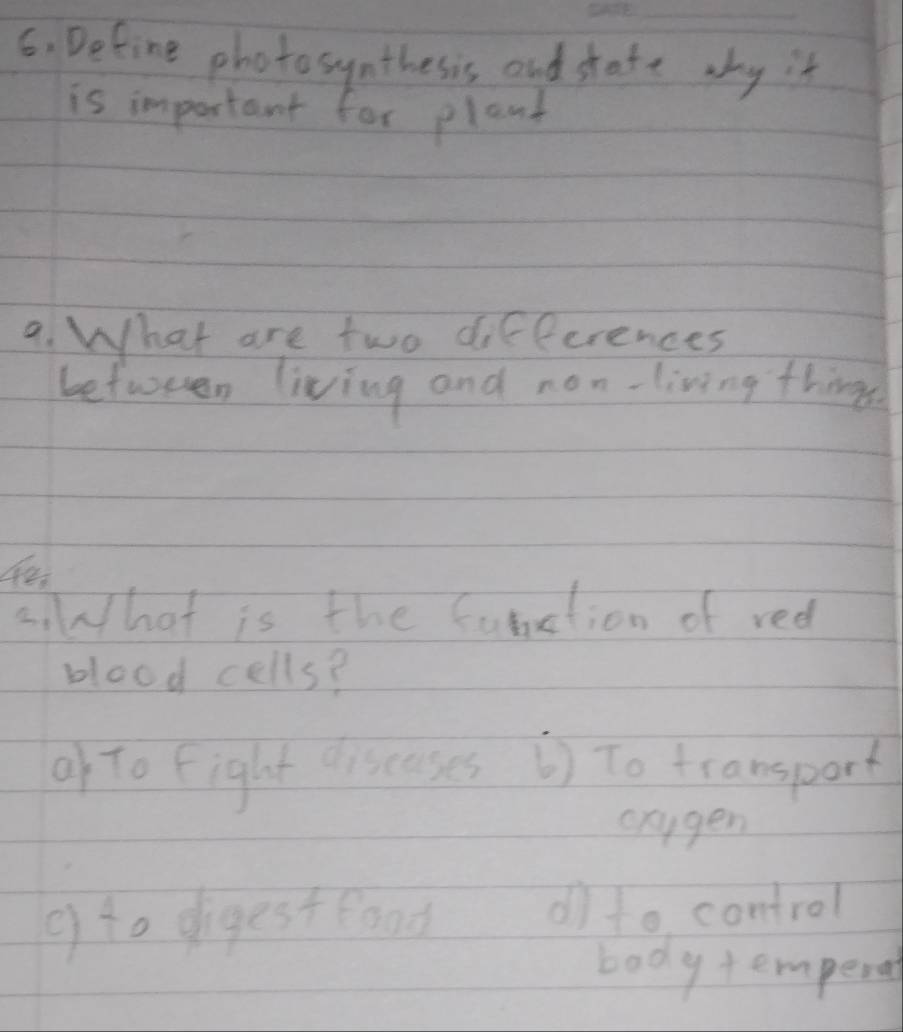 6. Define photosynthesis and state why it
is important for plant
9. What are two differences
between living and non-living things
2. What is the function of red
blood cells?
a) To fight diseases b) To transport
oxygen
c) to digest food d) to control
body temperat